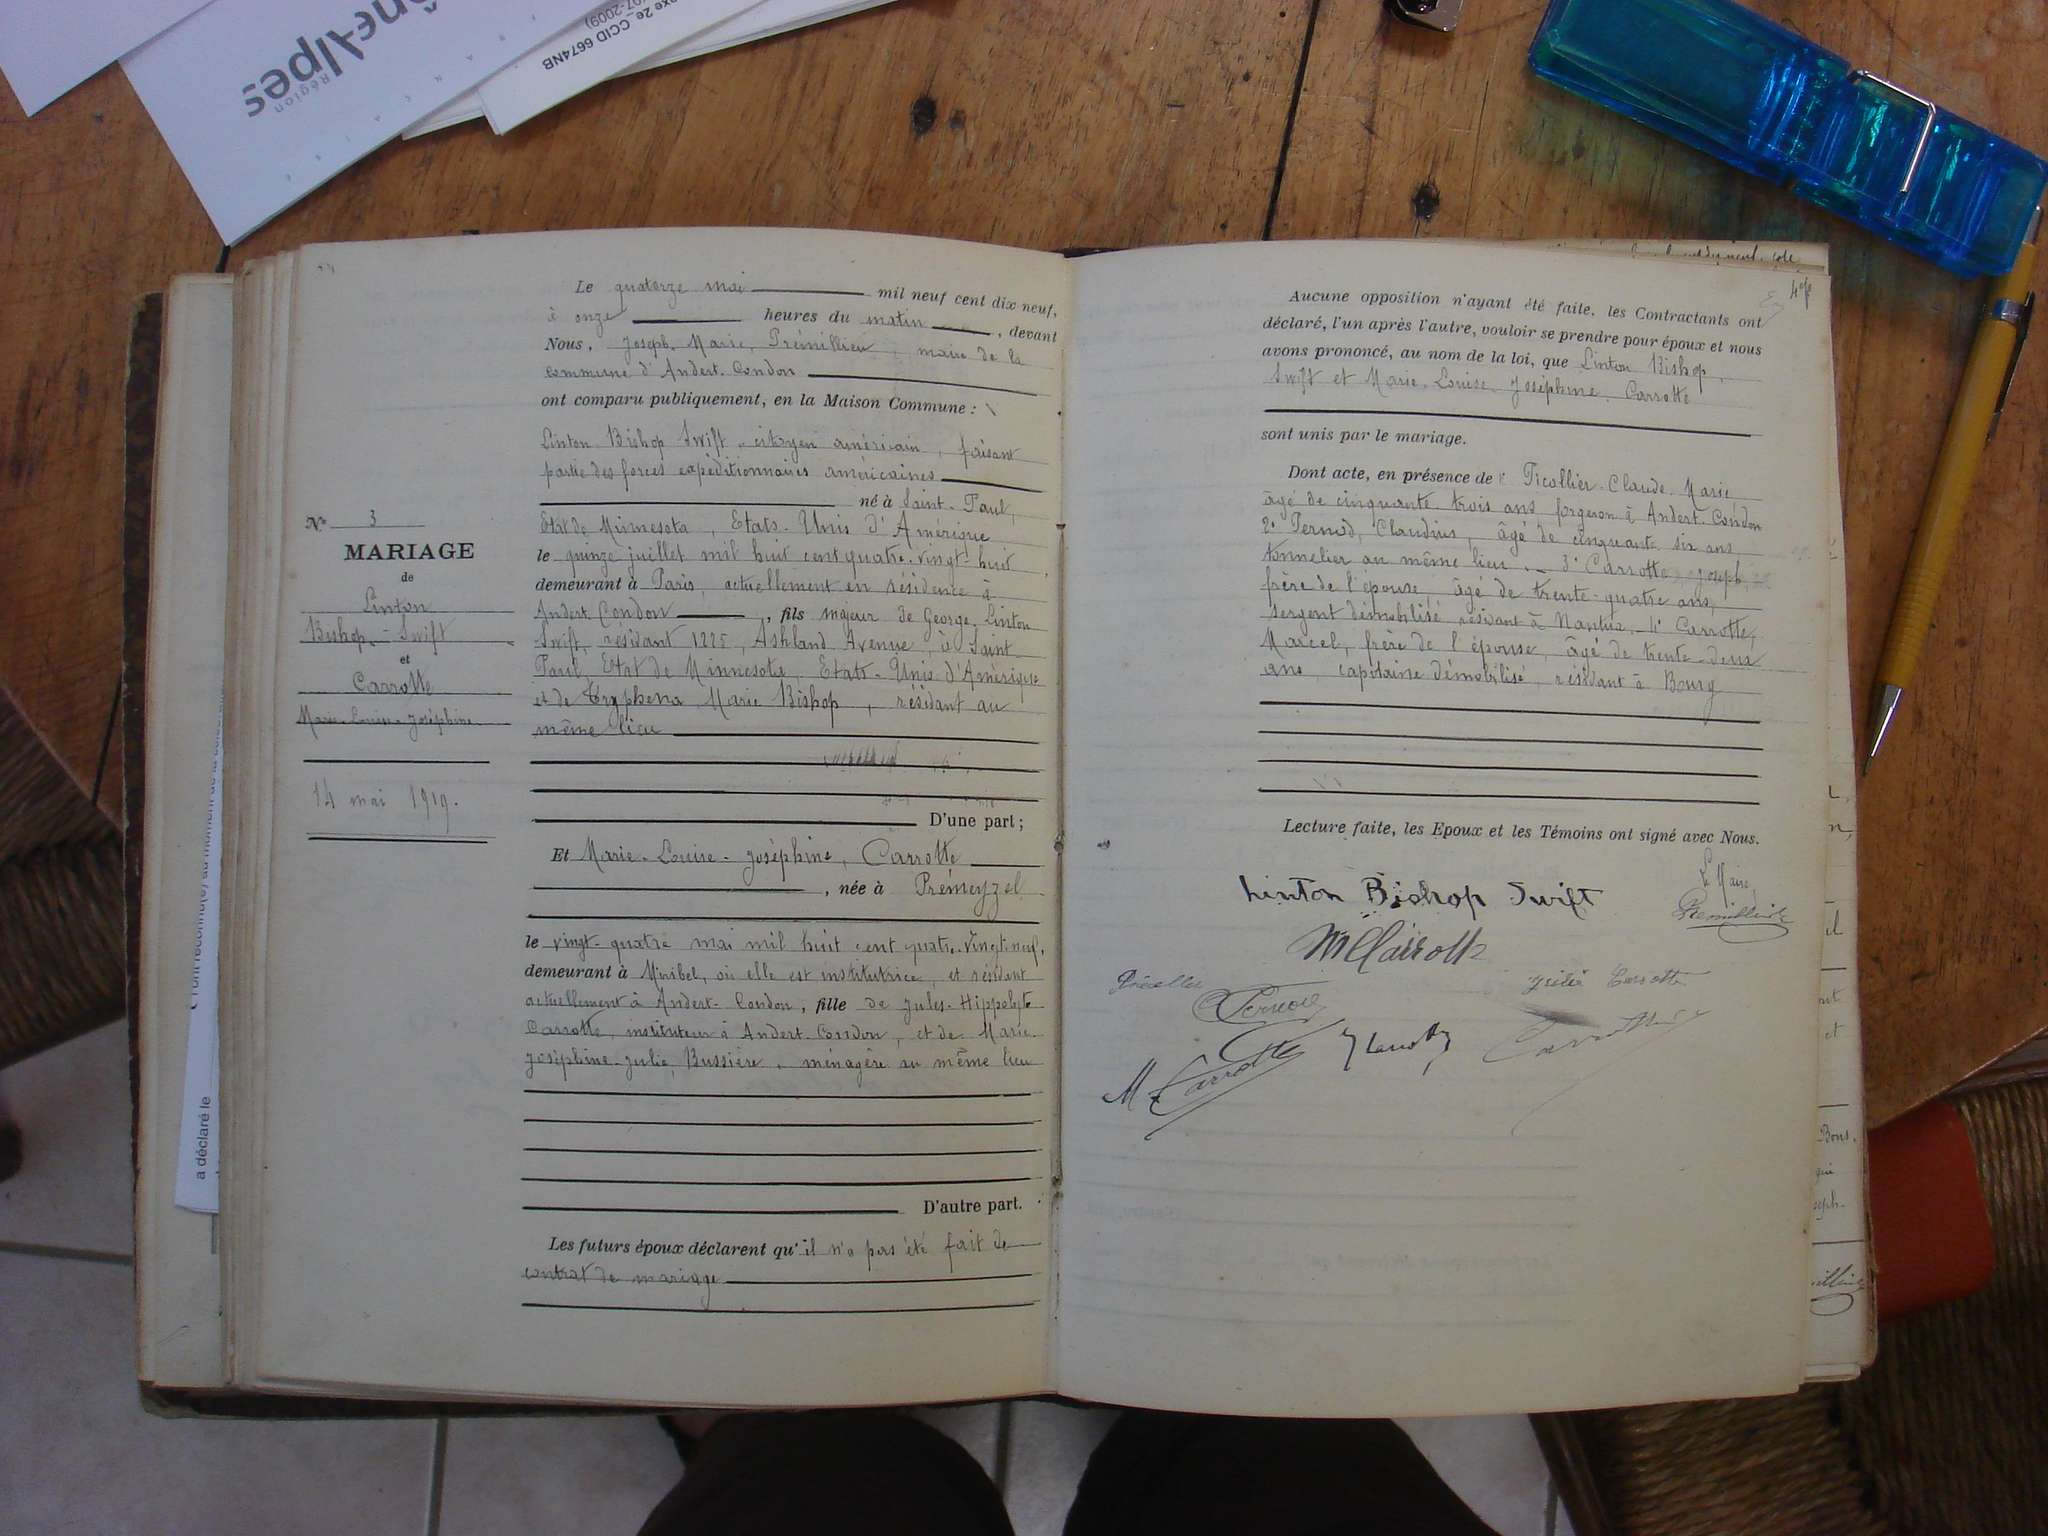 Rhône-Alpes
Région
exe 2e_CCID 6674NB
07-2009)
Le quatorze mai mil neuf cent dix neuf,
à onze heures du matin, devant
Nous, Joseph, Marie, Prémillieu, maire de la
commune d'Andert-Condon
ont comparu publiquement, en la Maison Commune :
Linton Bishop Swift, citoyen américain, faisant
partie des forces expéditionnaires américaines
né à Saint-Paul,
Etat de Minnesota, Etats-Unis d'Amérique
le quinze juillet mil huit cent quatre-vingt-huit
demeurant à Paris, actuellement en résidence à
Andert Condon, fils majeur de George, Linton
Swift, résidant 1225, Ashland Avenue, à Saint
Paul, Etat de Minnesota, Etats-Unis d'Amérique
et de Tryphena Marie Bishop, résidant au
même lieu
D'une part ;
Et Marie-Louise-Joséphine, Carrotte
, née à Prémeyzel
le vingt-quatre mai mil huit cent quatre-vingt-neuf,
demeurant à Miribel, où elle est institutrice, et résidant
actuellement à Andert-Condon, fille de Jules-Hippolyte
Carrotte, instituteur à Andert-Condon, et de Marie
Joséphine-Julie, Bussière, ménagère au même lieu
D'autre part.
Les futurs époux déclarent qu'il n'a pas été fait de
contrat de mariage
N° 3
MARIAGE
de
Linton
Bishop-Swift
et
Carrotte
Marie-Louise-Joséphine
14 mai 1919.
a déclaré le
Aucune opposition n'ayant été faite, les Contractants ont
déclaré, l'un après l'autre, vouloir se prendre pour époux et nous
avons prononcé, au nom de la loi, que Linton Bishop
Swift et Marie-Louise-Joséphine, Carrotte
sont unis par le mariage.
Dont acte, en présence de 1° Picollier-Claude-Marie
âgé de cinquante-trois ans forgeron à Andert-Condon
2° Pernod, Claudius, âgé de cinquante-six ans,
tonnelier au même lieu. - 3° Carrotte, Joseph,
frère de l'épouse, âgé de trente-quatre ans,
sergent démobilisé résidant à Nantua. - 4° Carrotte,
Marcel, frère de l'épouse, âgé de trente-deux
ans, capitaine démobilisé, résidant à Bourg
Lecture faite, les Epoux et les Témoins ont signé avec Nous.
Le Maire,
Linton Bishop Swift
Prémillieu
M Carrotte
Julie Carrotte
Pernod
M Carrotte
J Carrotte